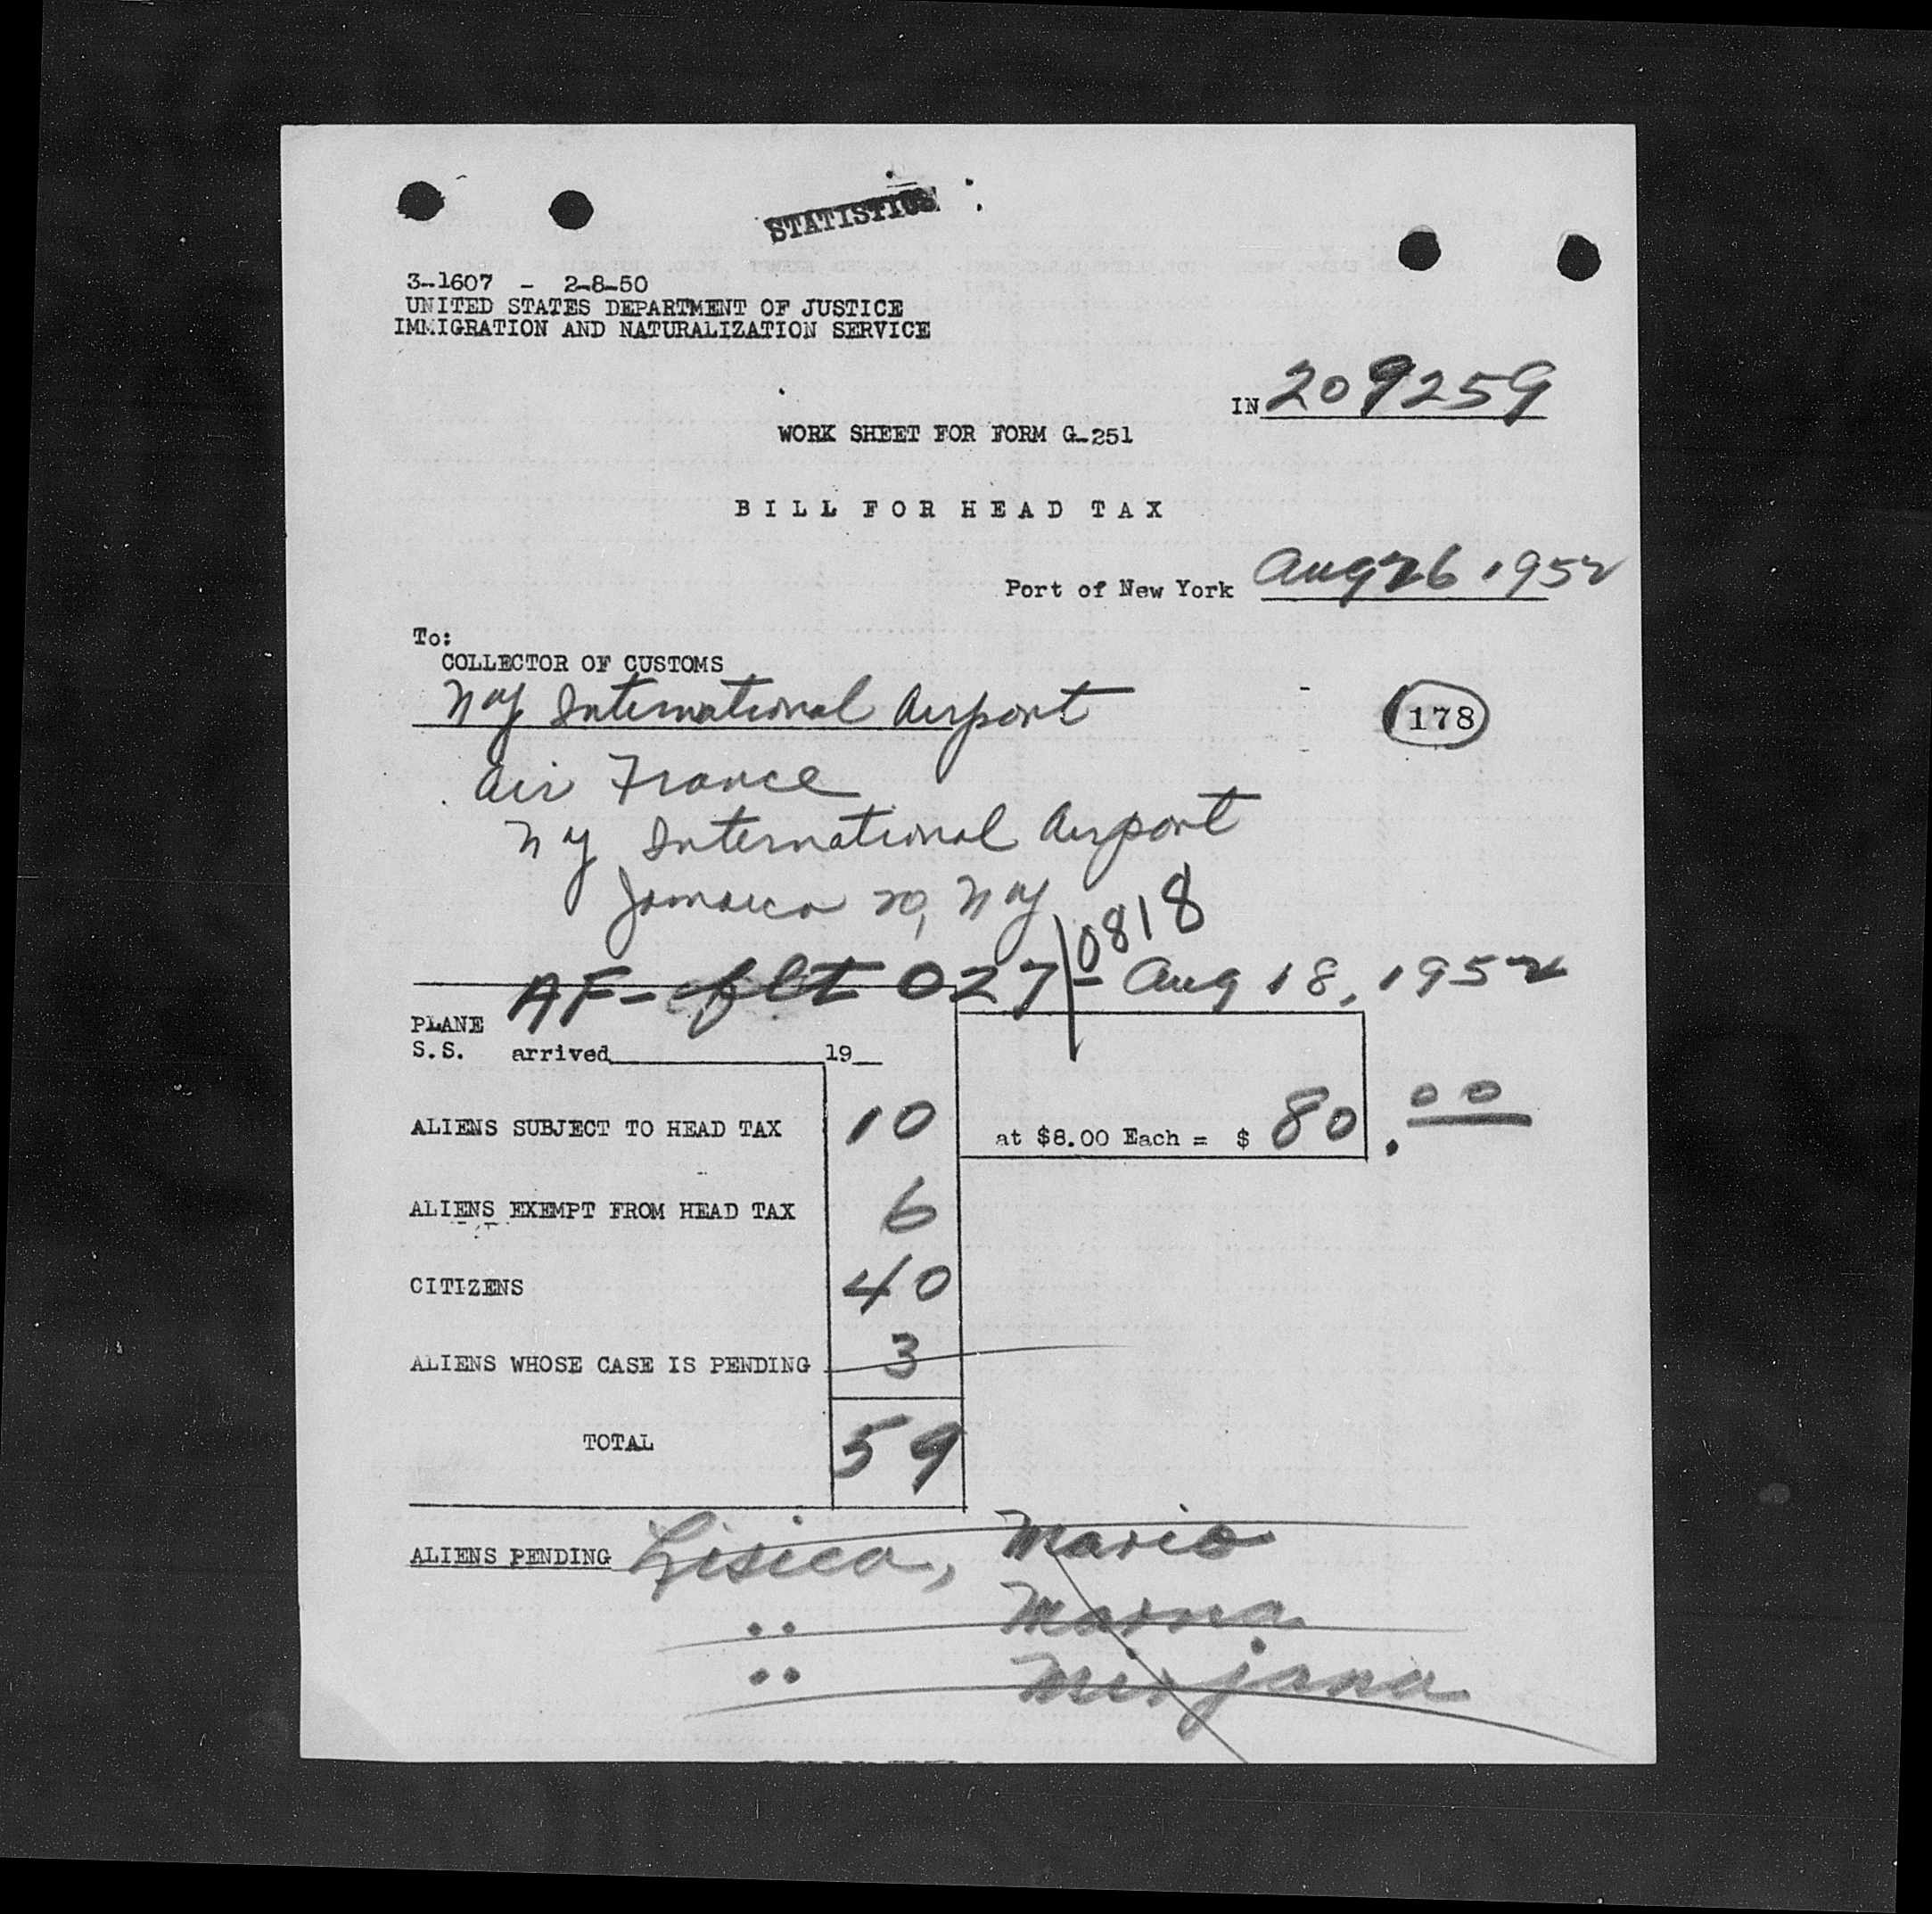 STATISTICS
3-1607 - 2-8-50
UNITED STATES DEPARTMENT OF JUSTICE
IMMIGRATION AND NATURALIZATION SERVICE
IN 209259
WORK SHEET FOR FORM G-251
BILL FOR HEAD TAX
Port of New York Aug 26 1952
To:
COLLECTOR OF CUSTOMS
NY International Airport
178
Air France
NY International Airport
Jamaica 20, NY
0818
AF-flt 027 - Aug 18, 1952
PLANE
S.S. arrived 19
ALIENS SUBJECT TO HEAD TAX 10 at $8.00 Each = $ 80.00
ALIENS EXEMPT FROM HEAD TAX 6
CITIZENS 40
ALIENS WHOSE CASE IS PENDING 3
TOTAL 59
ALIENS PENDING Lisica, Mario
" Marna
" Mirjana